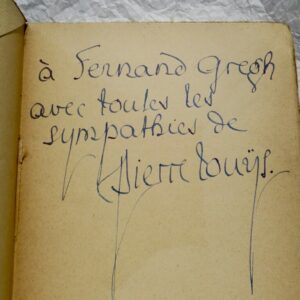 à Fernand Gregh
avec toutes les
sympathies de
Pierre Louÿs.